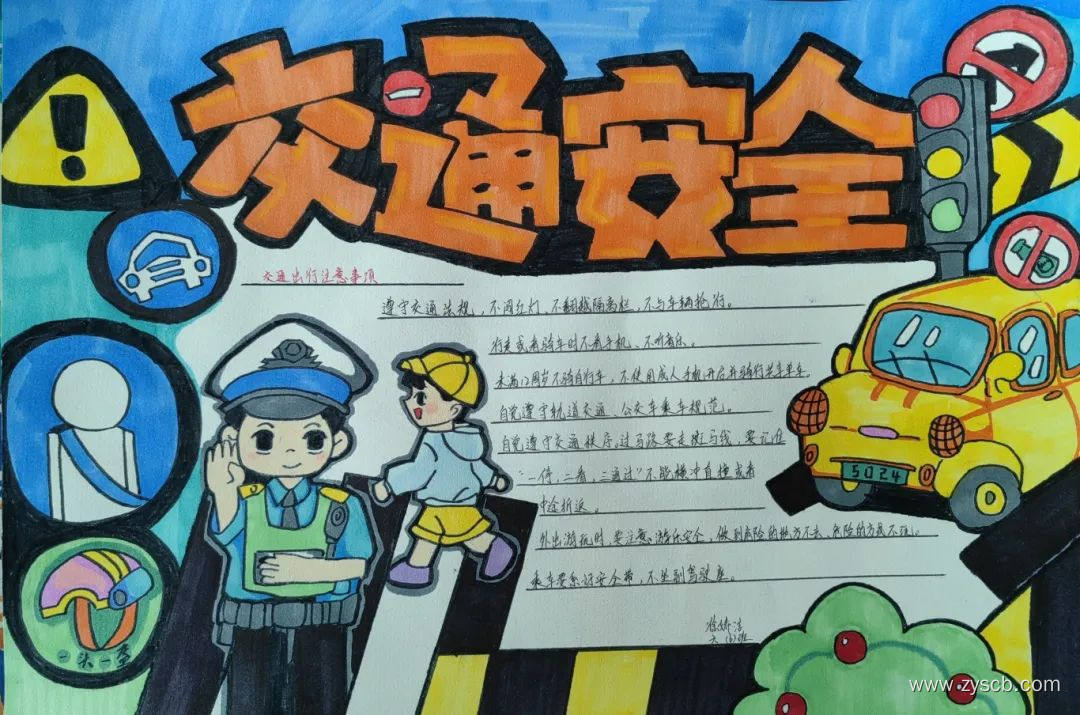 交通安全
交通出行注意事项
遵守交通法规，不闯红灯，不翻越隔离栏，不与车辆抢行。
行走或者骑车时不看手机、不听音乐。
未满12周岁不骑自行车，不使用成人手机开启并骑行共享单车
自觉遵守轨道交通、公交车乘车规范。
自觉遵守交通秩序，过马路要走斑马线，要记住
"一停，二看，三通过"不能横冲直撞或者
中途折返。
外出游玩时，要注意游乐安全，做到危险的地方不去，危险的方式不玩。
乘车要系好安全带，不坐副驾驶座。
5024
一米一盔
www.zyscb.com